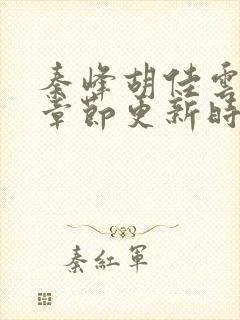 秦峰胡佳雲
章節更新時
秦紅軍